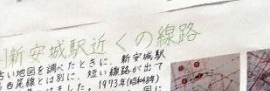 新安城駅近くの線路
古い地図を調べたときに、新安城駅
西尾線とは別に、短い線路が出て
ました。1973年(昭和48年)